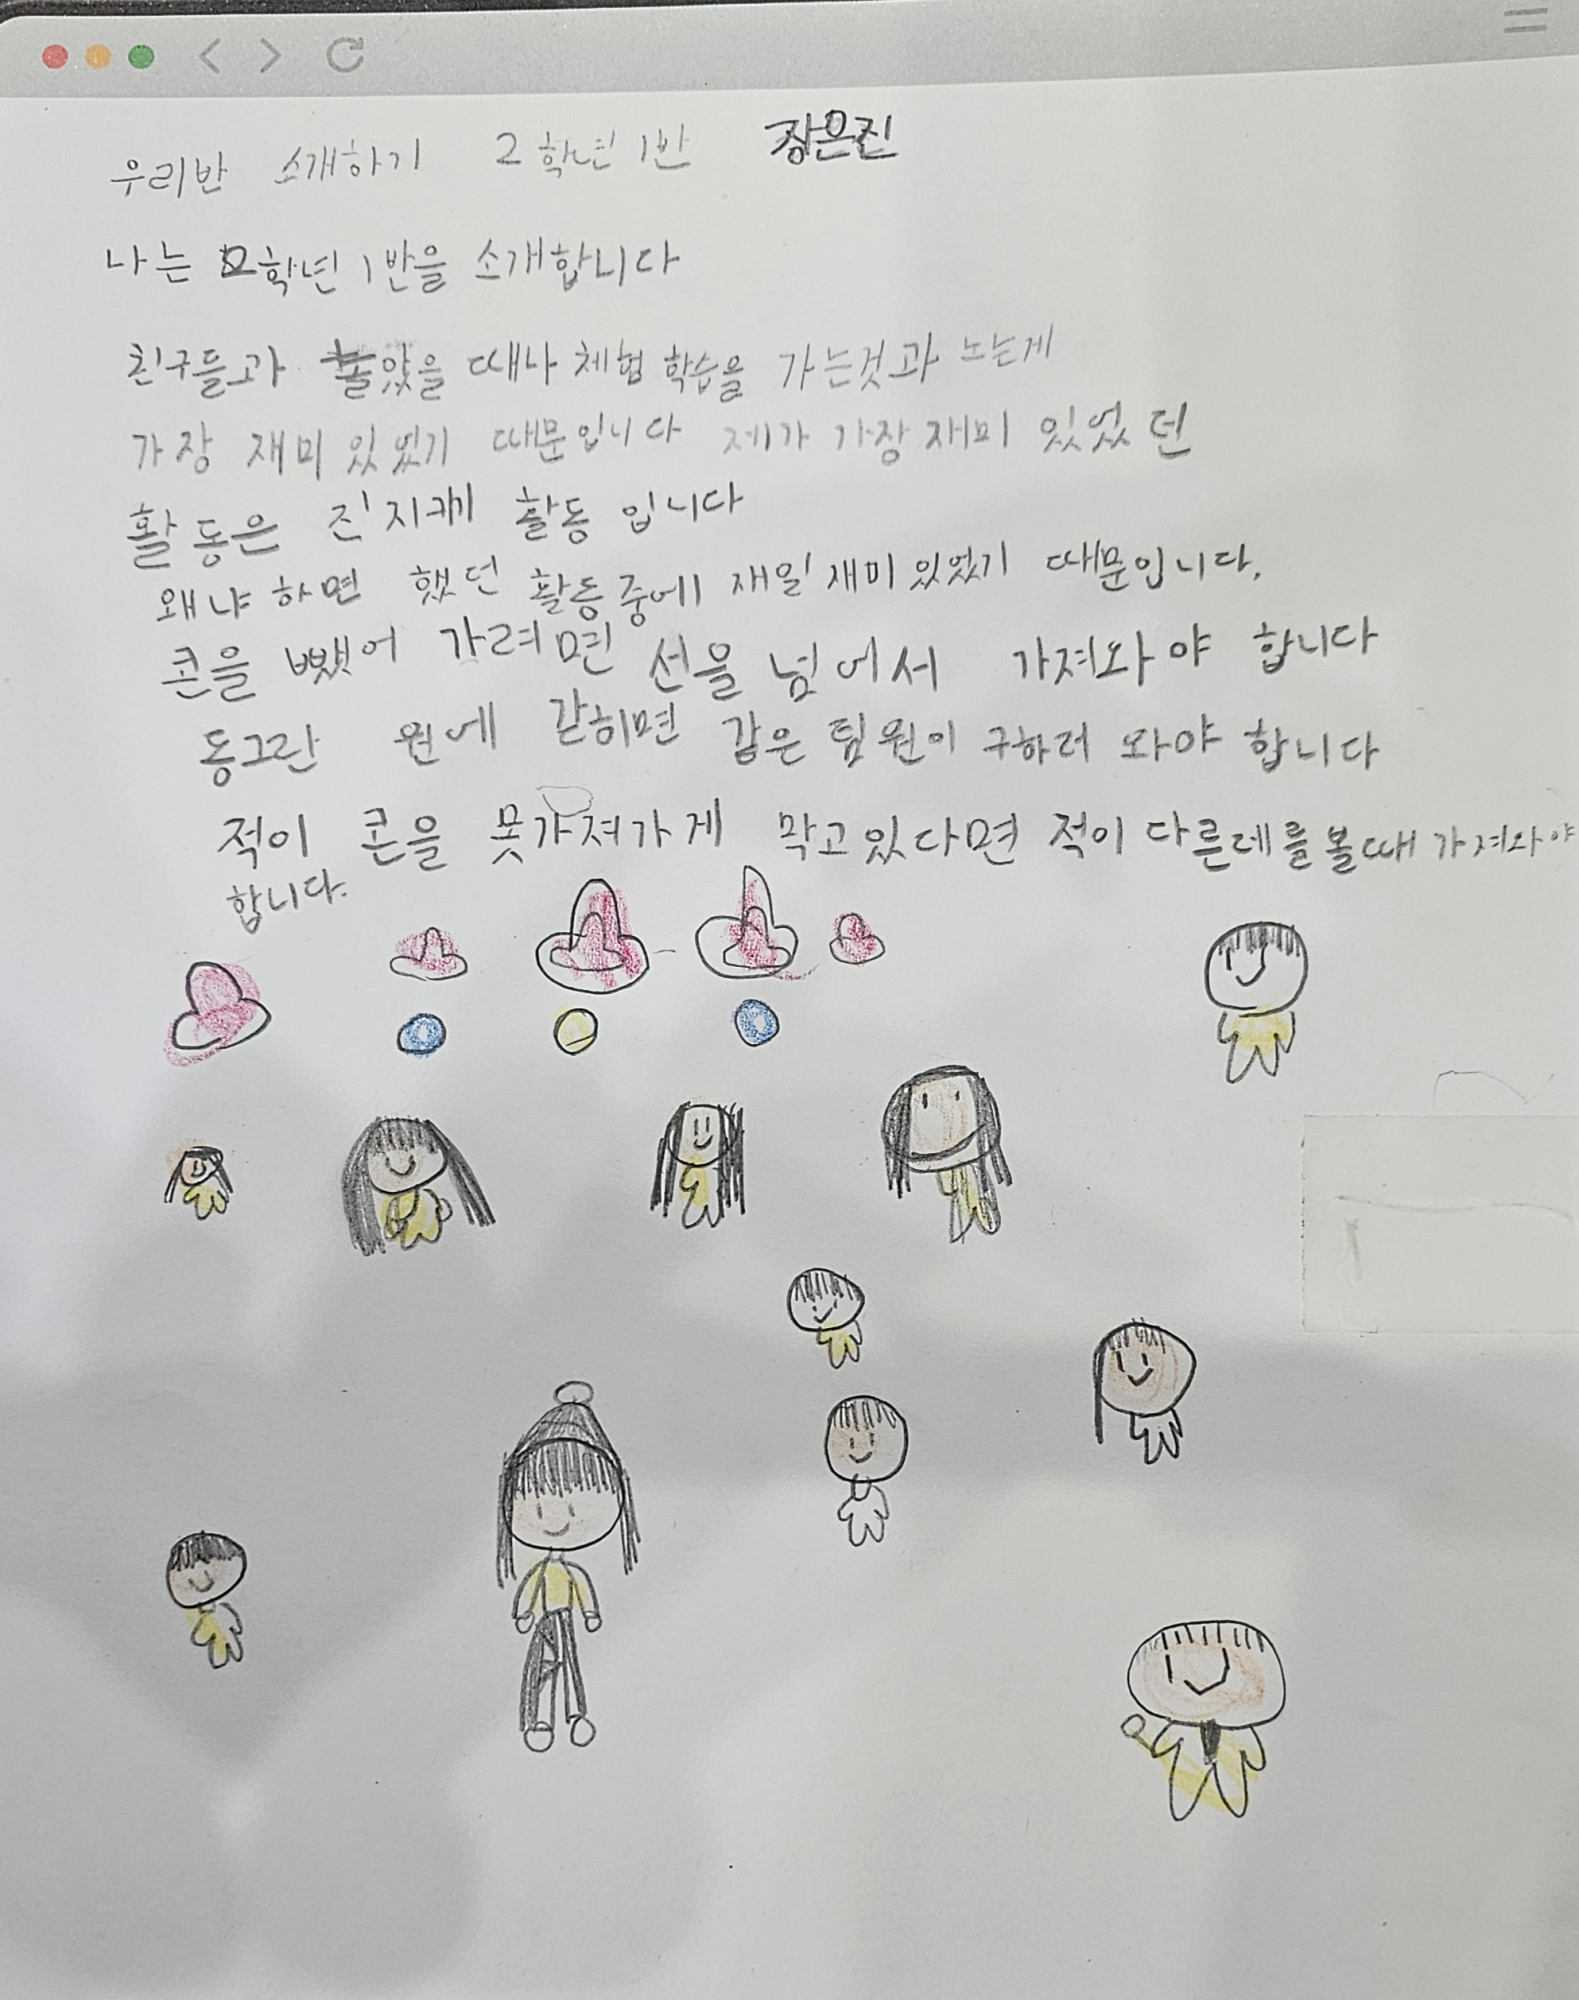 우리반 소개하기 2학년 1반 장은진
나는 2학년 1반을 소개합니다
친구들과 놀았을 때나 체험 학습을 가는것과 노는게
가장 재미 있었기 때문입니다 제가 가장 재미 있었던
활동은 진지케 활동 입니다
왜냐하면 했던 활동중에 재일 재미 있었기 때문입니다.
콘을 뺐어 가려면 선을 넘어서 가져와야 합니다
동그란 원에 갇히면 같은 팀원이 구하러 와야 합니다
적이 콘을 못가져가게 막고있다면 적이 다른데를 볼때 가져와야
합니다.